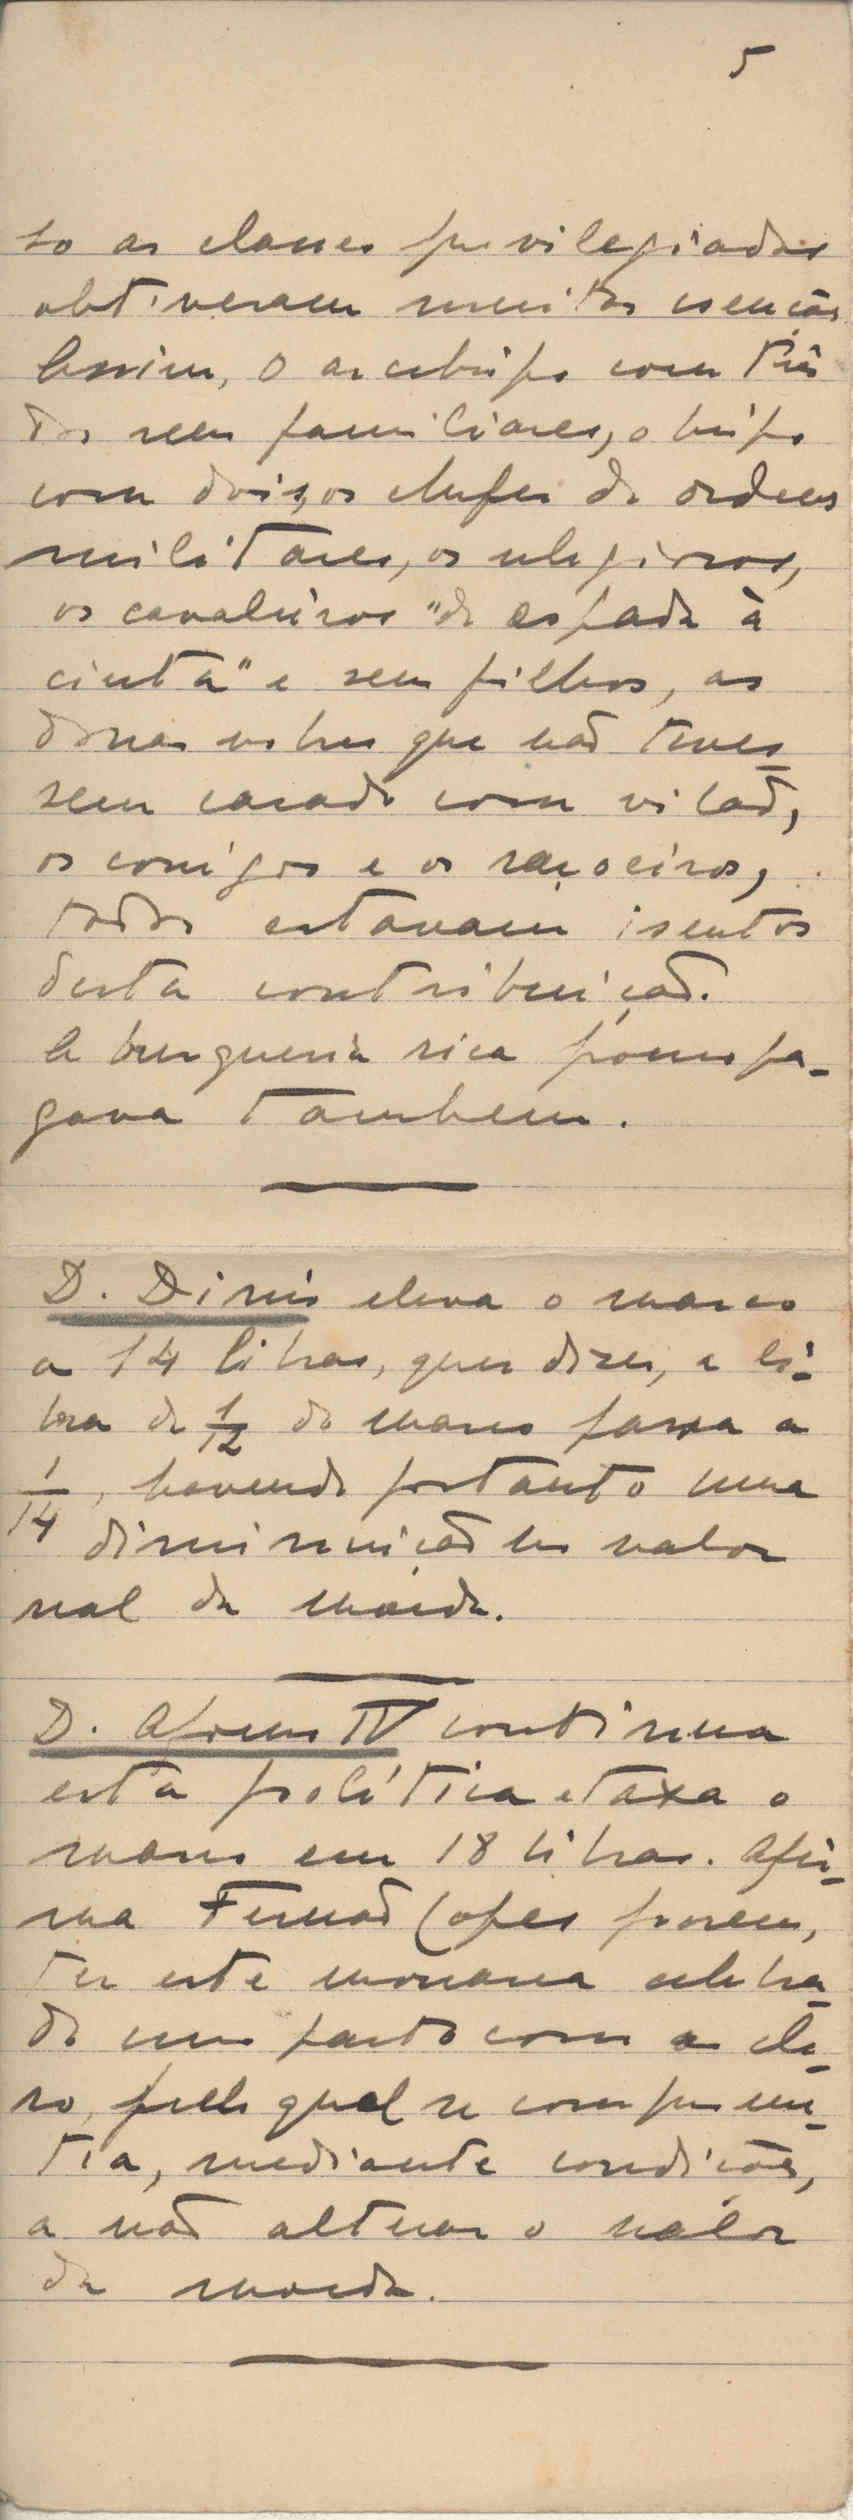 5
to as classes privilegiadas
obtiveram muitas isenções.
Assim, o arcebispo com três
dos seus familiares, o bispo
com dois, os chefes de ordens
militares, os religiosos,
os cavaleiros "de espada à
cinta" e seus filhos, as
donas nobres que não tives-
sem casado com vilão,
os conigos e os raçoeiros,
todos estavam isentos
desta contribuição.
A burguesia rica porém pa-
gava tambem.
D. Dinis eleva o marco
a 14 libras, quer dizer, a li-
bra de 1/12 do marco passa a
1/14, havendo portanto uma
diminuição no valor
real da moeda.
D. Afonso IV continua
esta política e taxa o
marco em 18 libras. Afir-
ma Fernão Lopes porem,
ter este monarca celebra-
do um pacto com o cle-
ro, pelo qual se comprome-
tia, mediante condições,
a não alterar o valor
da moeda.